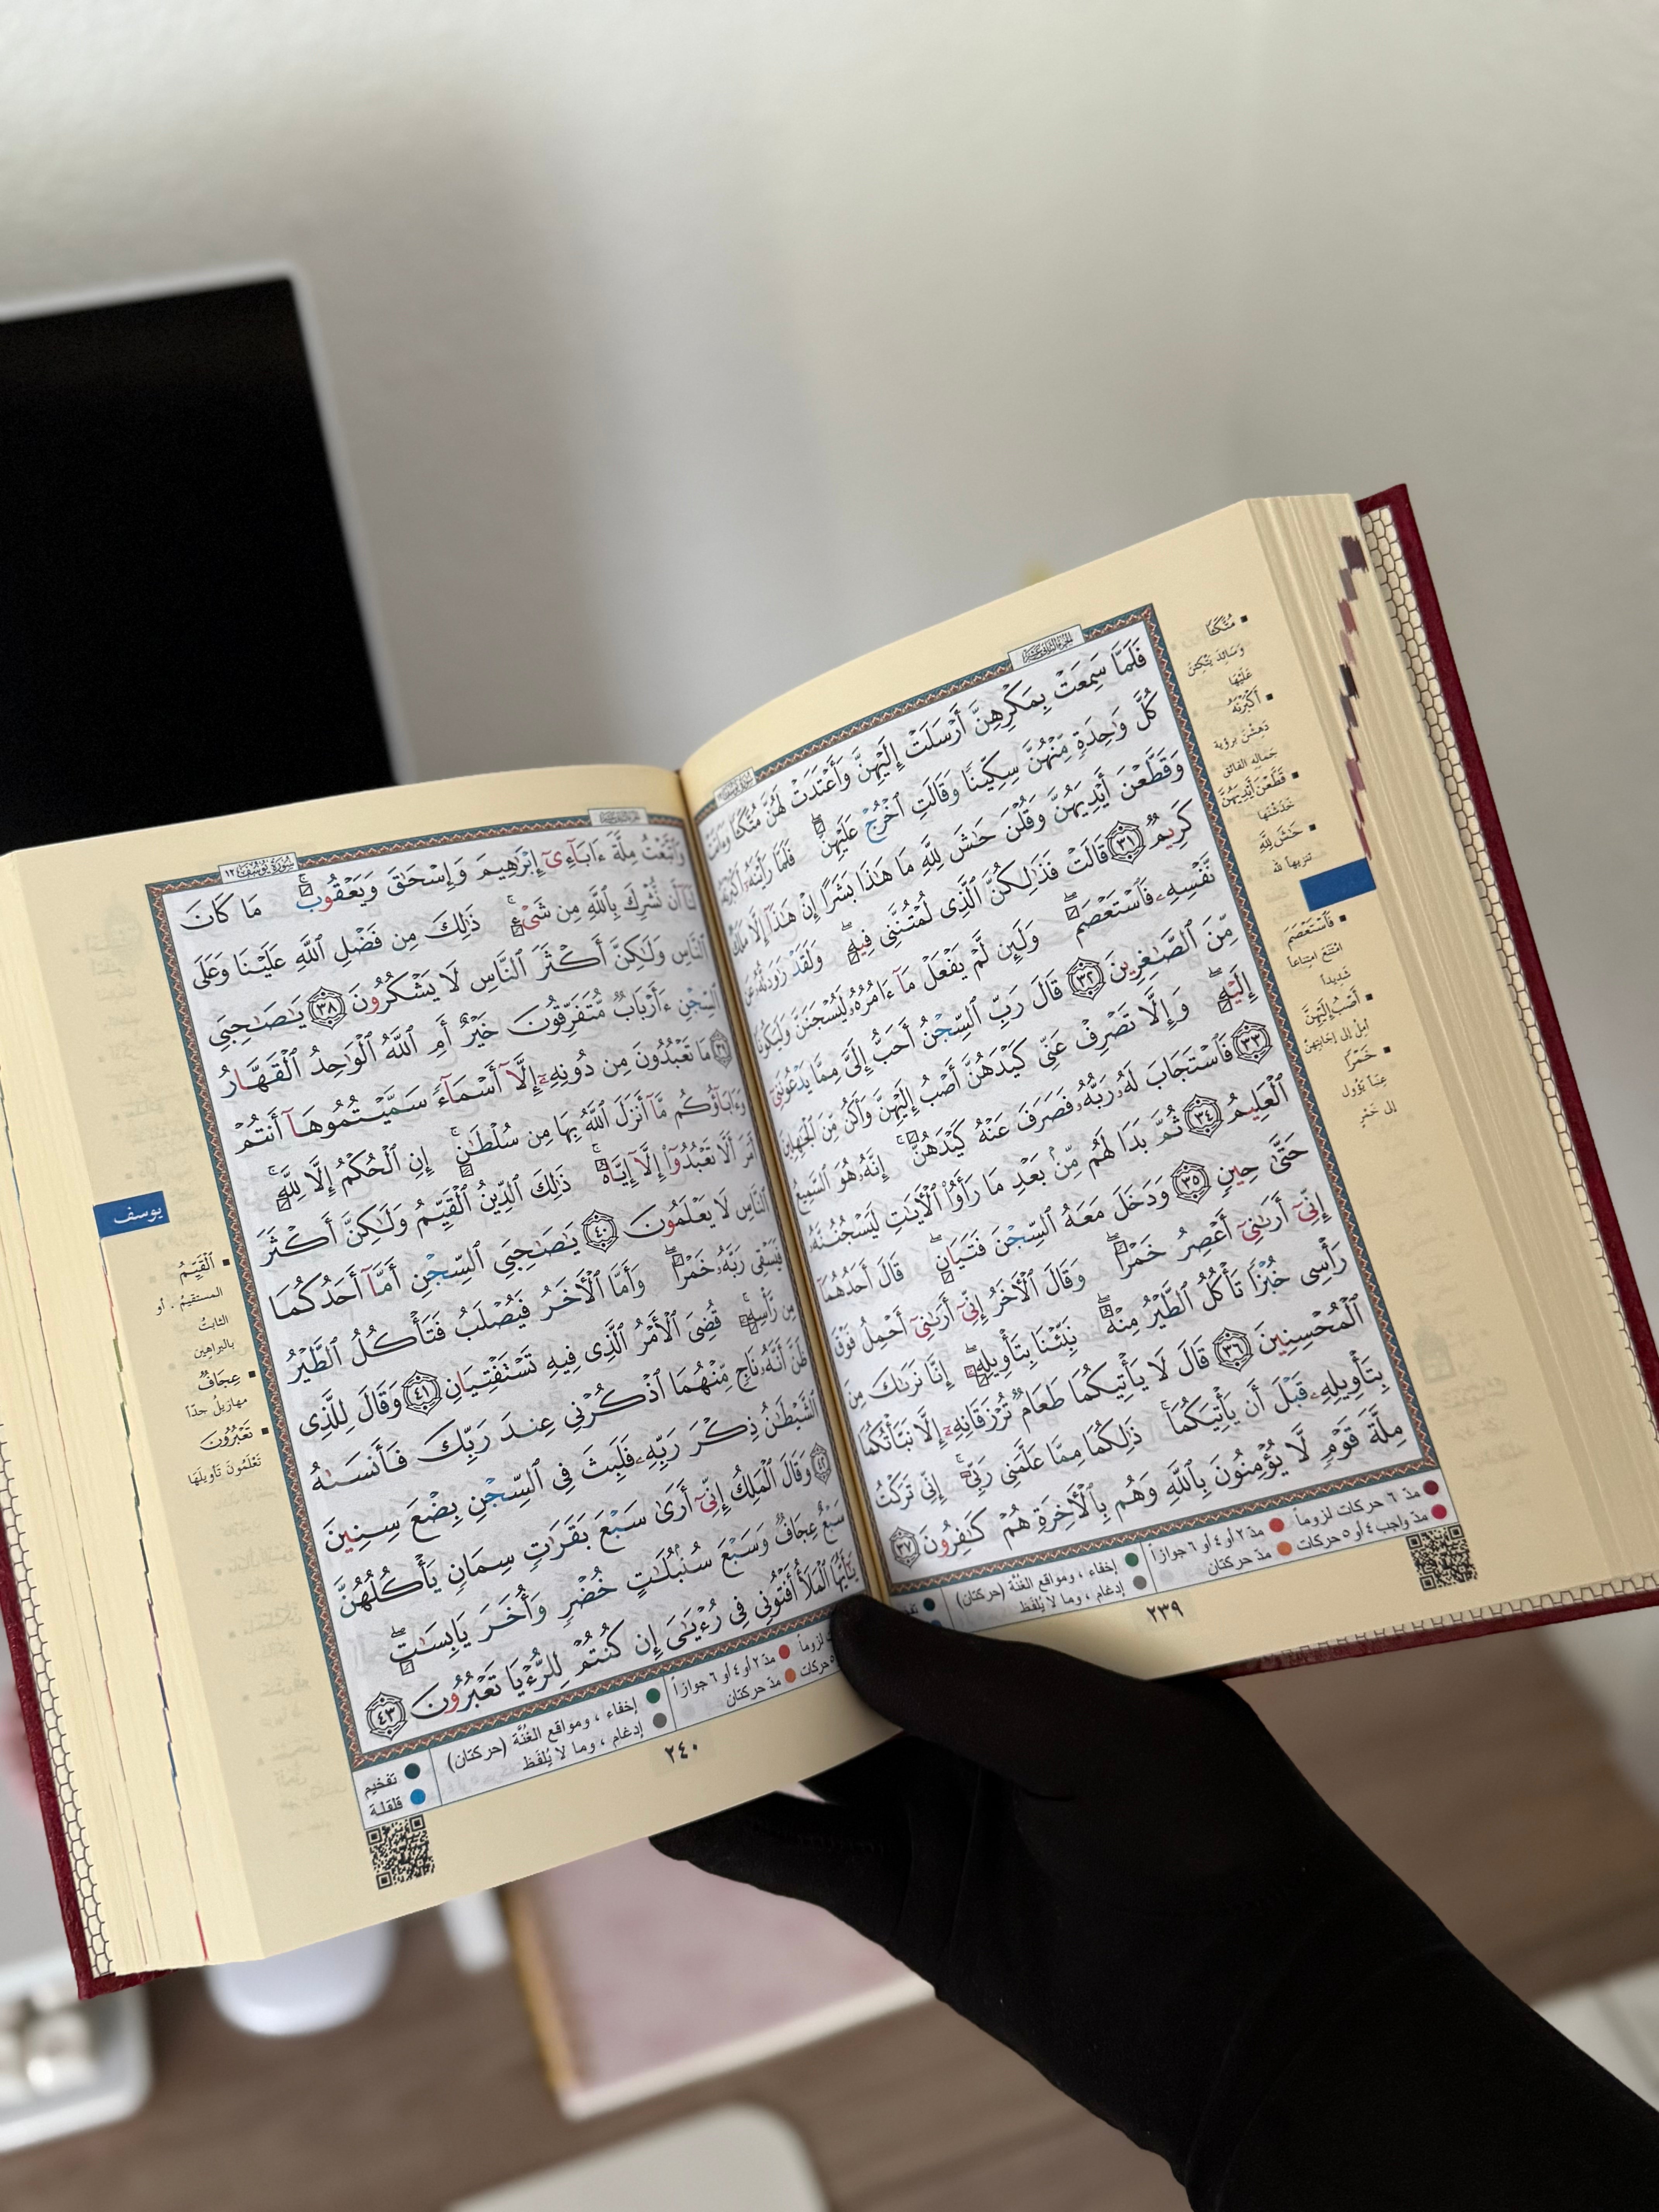 فَلَمَّا سَمِعَتْ بِمَكْرِهِنَّ أَرْسَلَتْ إِلَيْهِنَّ وَأَعْتَدَتْ لَهُنَّ مُتَّكَـًٔا وَءَاتَتْ
كُلَّ وَٰحِدَةٍ مِّنْهُنَّ سِكِّينًا وَقَالَتِ ٱخْرُجْ عَلَيْهِنَّ ۖ فَلَمَّا رَأَيْنَهُۥٓ أَكْبَرْنَهُۥ
وَقَطَّعْنَ أَيْدِيَهُنَّ وَقُلْنَ حَٰشَ لِلَّهِ مَا هَٰذَا بَشَرًا إِنْ هَٰذَآ إِلَّا مَلَكٌ
كَرِيمٌ ﴿٣١﴾ قَالَتْ فَذَٰلِكُنَّ ٱلَّذِى لُمْتُنَّنِى فِيهِ ۖ وَلَقَدْ رَٰوَدتُّهُۥ عَن
نَّفْسِهِۦ فَٱسْتَعْصَمَ ۖ وَلَئِن لَّمْ يَفْعَلْ مَآ ءَامُرُهُۥ لَيُسْجَنَنَّ وَلَيَكُونًا
مِّنَ ٱلصَّٰغِرِينَ ﴿٣٢﴾ قَالَ رَبِّ ٱلسِّجْنُ أَحَبُّ إِلَىَّ مِمَّا يَدْعُونَنِىٓ
إِلَيْهِ ۖ وَإِلَّا تَصْرِفْ عَنِّى كَيْدَهُنَّ أَصْبُ إِلَيْهِنَّ وَأَكُن مِّنَ ٱلْجَٰهِلِينَ
﴿٣٣﴾ فَٱسْتَجَابَ لَهُۥ رَبُّهُۥ فَصَرَفَ عَنْهُ كَيْدَهُنَّ ۚ إِنَّهُۥ هُوَ ٱلسَّمِيعُ
ٱلْعَلِيمُ ﴿٣٤﴾ ثُمَّ بَدَا لَهُم مِّنۢ بَعْدِ مَا رَأَوُا۟ ٱلْـَٔايَٰتِ لَيَسْجُنُنَّهُۥ
حَتَّىٰ حِينٍ ﴿٣٥﴾ وَدَخَلَ مَعَهُ ٱلسِّجْنَ فَتَيَانِ ۖ قَالَ أَحَدُهُمَآ
إِنِّىٓ أَرَىٰنِىٓ أَعْصِرُ خَمْرًا ۖ وَقَالَ ٱلْـَٔاخَرُ إِنِّىٓ أَرَىٰنِىٓ أَحْمِلُ فَوْقَ
رَأْسِى خُبْزًا تَأْكُلُ ٱلطَّيْرُ مِنْهُ ۖ نَبِّئْنَا بِتَأْوِيلِهِۦٓ ۖ إِنَّا نَرَىٰكَ مِنَ
ٱلْمُحْسِنِينَ ﴿٣٦﴾ قَالَ لَا يَأْتِيكُمَا طَعَامٌ تُرْزَقَانِهِۦٓ إِلَّا نَبَّأْتُكُمَا
بِتَأْوِيلِهِۦ قَبْلَ أَن يَأْتِيَكُمَا ۚ ذَٰلِكُمَا مِمَّا عَلَّمَنِى رَبِّىٓ ۚ إِنِّى تَرَكْتُ
مِلَّةَ قَوْمٍ لَّا يُؤْمِنُونَ بِٱللَّهِ وَهُم بِٱلْـَٔاخِرَةِ هُمْ كَٰفِرُونَ ﴿٣٧﴾
▪ مُتَّكَـًٔا
وَسَائِدَ يَتَّكِئْنَ
عَلَيْهَا
▪ أَكْبَرْنَهُۥ
دَهِشْنَ برؤية
جَمَالِهِ الفائق
▪ قَطَّعْنَ أَيْدِيَهُنَّ
خَدَشْنَها
▪ حَٰشَ لِلَّهِ
تنزيهاً لله
▪ فَٱسْتَعْصَمَ
امْتَنَعَ امتِناعاً
شَدِيداً
▪ أَصْبُ إِلَيْهِنَّ
أمِلْ إلى إجَابَتِهِنّ
▪ خَمْرًا
عِنَباً يَؤُول
إلى خَمْرٍ
مدّ ٦ حركات لزوماً
مدّ ٢ أو ٤ أو ٦ جوازاً
مدّ واجب ٤ أو ٥ حركات
مدّ حركتان
إخفاء ، ومواقع الغُنَّة (حركتان)
إدغام ، وما لا يُلفَظ
٢٣٩
سُورَةُ يُوسُفَ ١٢
وَٱتَّبَعْتُ مِلَّةَ ءَابَآءِىٓ إِبْرَٰهِيمَ وَإِسْحَٰقَ وَيَعْقُوبَ ۚ مَا كَانَ
لَنَآ أَن نُّشْرِكَ بِٱللَّهِ مِن شَىْءٍ ۚ ذَٰلِكَ مِن فَضْلِ ٱللَّهِ عَلَيْنَا وَعَلَى
ٱلنَّاسِ وَلَٰكِنَّ أَكْثَرَ ٱلنَّاسِ لَا يَشْكُرُونَ ﴿٣٨﴾ يَٰصَٰحِبَىِ
ٱلسِّجْنِ ءَأَرْبَابٌ مُّتَفَرِّقُونَ خَيْرٌ أَمِ ٱللَّهُ ٱلْوَٰحِدُ ٱلْقَهَّارُ
﴿٣٩﴾ مَا تَعْبُدُونَ مِن دُونِهِۦٓ إِلَّآ أَسْمَآءً سَمَّيْتُمُوهَآ أَنتُمْ
وَءَابَآؤُكُم مَّآ أَنزَلَ ٱللَّهُ بِهَا مِن سُلْطَٰنٍ ۚ إِنِ ٱلْحُكْمُ إِلَّا لِلَّهِ ۚ
أَمَرَ أَلَّا تَعْبُدُوٓا۟ إِلَّآ إِيَّاهُ ۚ ذَٰلِكَ ٱلدِّينُ ٱلْقَيِّمُ وَلَٰكِنَّ أَكْثَرَ
ٱلنَّاسِ لَا يَعْلَمُونَ ﴿٤٠﴾ يَٰصَٰحِبَىِ ٱلسِّجْنِ أَمَّآ أَحَدُكُمَا
فَيَسْقِى رَبَّهُۥ خَمْرًا ۖ وَأَمَّا ٱلْـَٔاخَرُ فَيُصْلَبُ فَتَأْكُلُ ٱلطَّيْرُ
مِن رَّأْسِهِۦ ۚ قُضِىَ ٱلْأَمْرُ ٱلَّذِى فِيهِ تَسْتَفْتِيَانِ ﴿٤١﴾ وَقَالَ لِلَّذِى
ظَنَّ أَنَّهُۥ نَاجٍ مِّنْهُمَا ٱذْكُرْنِى عِندَ رَبِّكَ فَأَنسَىٰهُ
ٱلشَّيْطَٰنُ ذِكْرَ رَبِّهِۦ فَلَبِثَ فِى ٱلسِّجْنِ بِضْعَ سِنِينَ
﴿٤٢﴾ وَقَالَ ٱلْمَلِكُ إِنِّىٓ أَرَىٰ سَبْعَ بَقَرَٰتٍ سِمَانٍ يَأْكُلُهُنَّ
سَبْعٌ عِجَافٌ وَسَبْعَ سُنۢبُلَٰتٍ خُضْرٍ وَأُخَرَ يَابِسَٰتٍ ۖ
يَٰٓأَيُّهَا ٱلْمَلَأُ أَفْتُونِى فِى رُءْيَٰىَ إِن كُنتُمْ لِلرُّءْيَا تَعْبُرُونَ ﴿٤٣﴾
يوسف
▪ ٱلْقَيِّمُ
المستقيمُ . أو
الثابتُ
بالبراهين
▪ عِجَافٌ
مهازيلُ جدّاً
▪ تَعْبُرُونَ
تَعْلَمُونَ تَأْوِيلَهَا
لزوماً
مدّ ٢ أو ٤ أو ٦ جوازاً
حركات
مدّ حركتان
إخفاء ، ومواقع الغُنَّة (حركتان)
إدغام ، وما لا يُلفَظ
تفخيم
قلقلة
٢٤٠